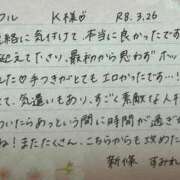 フル K様♡ R8.3.26
絡に気付けて本当に良かったです
えて下さり、最初から思わずホッ
た♡手つきがとてもエロかったです…!
て、気遣いもあり、すごく素敵な人柄
いたらあっという間に時間が過ぎ
ね!またたくさん、こちらからも攻めた
新條 すみれ